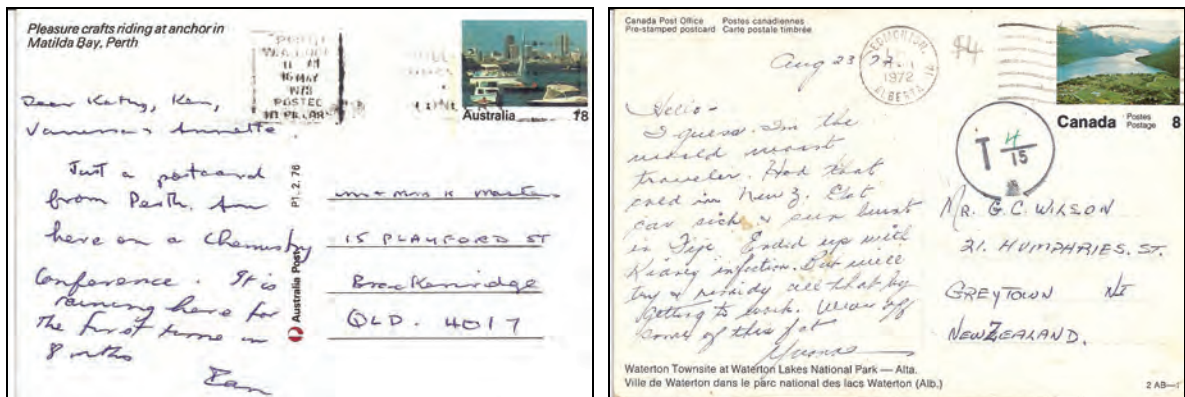 Pleasure crafts riding at anchor in
Matilda Bay, Perth
PERTH
11 AM
16 MAY
POSTED
IN PILLAR
Australia 18
Dear Kathy, Ken,
Vanessa & Annette
Just a postcard
from Perth. Am
here on a Chemistry
Conference. It is
raining here for
the first time in
8 mths
Ian
P1. 2. 76
Australia Post
Mr & Mrs K
15 PLAYFORD ST
Brackenridge
QLD. 4017
Canada Post Office Postes canadiennes
Pre-stamped postcard Carte postale timbrée
Aug 23 72
EDMONTON
1972
ALBERTA
$4
Canada Postes Postage 8
T 4/15
Hello -
I guess I'm the
world worst
traveler. Had that
cold in New Z. Got
car sick & sun burnt
in Fiji. Ended up with
Kidney infection. But will
try & remidy all that by
getting to work. Wear off
some of this fat
Yvonne
MR. G. C. WILSON
21. HUMPHRIES. ST.
GREYTOWN NI
NEW ZEALAND.
Waterton Townsite at Waterton Lakes National Park — Alta.
Ville de Waterton dans le parc national des lacs Waterton (Alb.)
2 AB—1